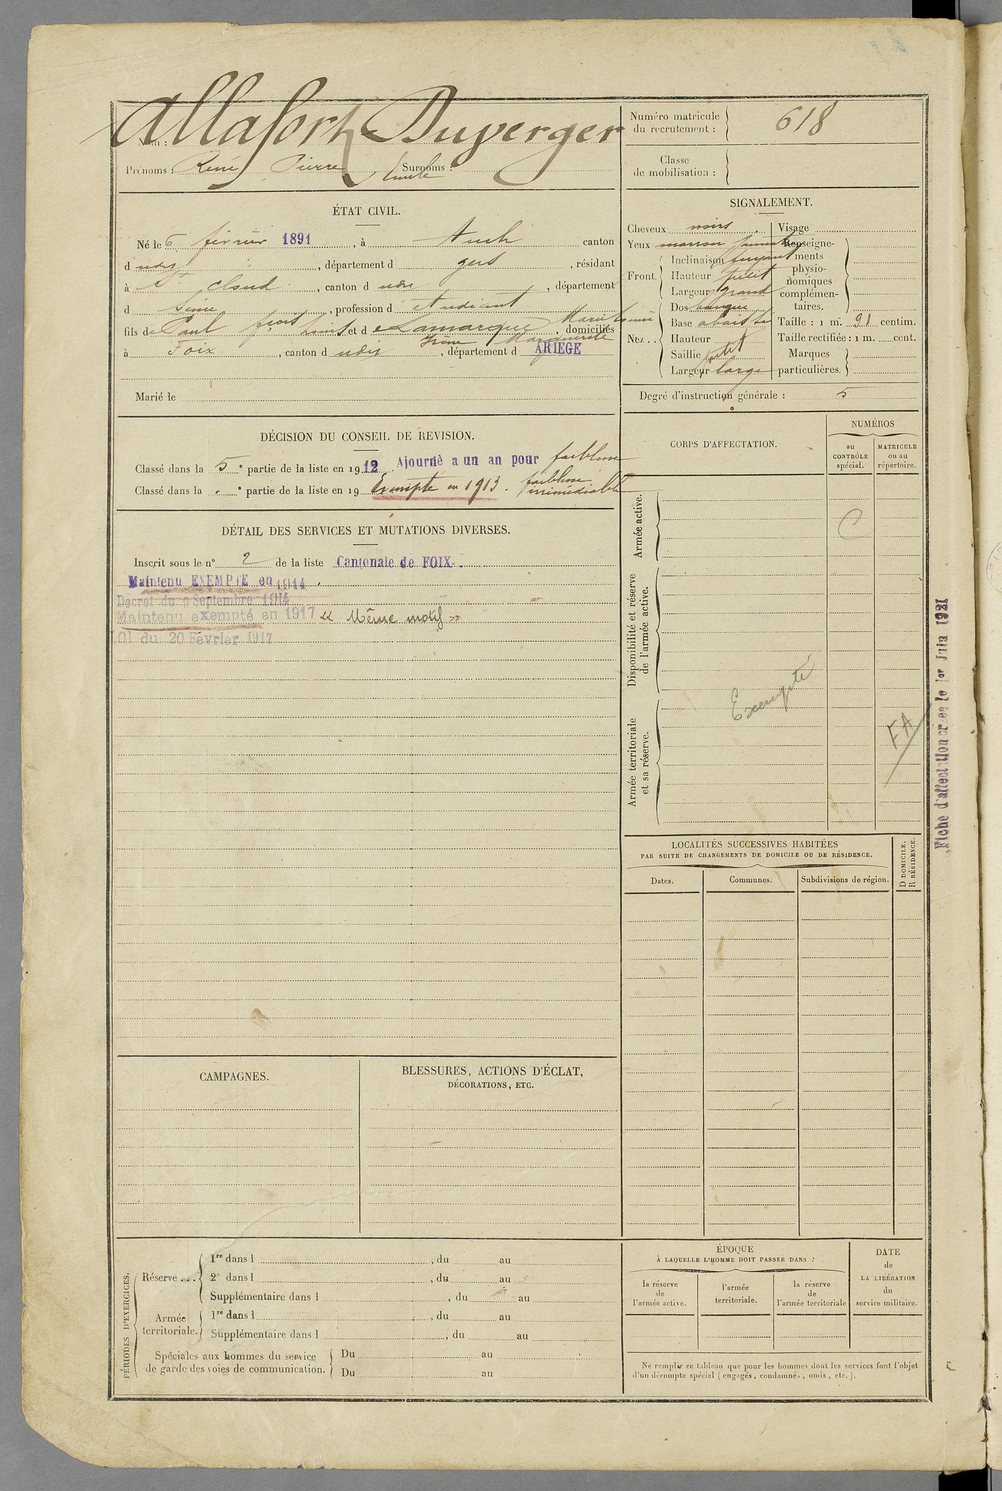 Allafort Duverger
Nom :
Prénoms : René Pierre Emile Surnoms :
Numéro matricule du recrutement : 618
Classe de mobilisation :
ÉTAT CIVIL.
Né le 6 février 1891, à Auch canton
d udis, département d gers, résidant
à St Cloud, canton d udis, département
d Seine, profession d étudiant
fils de Paul et d e Lamarque Marie, domiciliés
Marguerite
à Foix, canton d udis, département d ARIÈGE
Marié le
SIGNALEMENT.
Cheveux noirs
Yeux marron
Front.
Inclinaison fuyant
Hauteur petit
Largeur grand
Nez..
Dos busqué
Base
Hauteur
Saillie petit
Largeur large
Visage
Renseignements physionomiques complémentaires.
Taille : 1 m. 91 centim.
Taille rectifiée : 1 m. cent.
Marques particulières.
Degré d'instruction générale : 5
DÉCISION DU CONSEIL DE REVISION.
Classé dans la 5e partie de la liste en 1912. Ajourné a un an pour faiblesse
Classé dans la e partie de la liste en 19 Exempté en 1913. faiblesse irrémédiable
CORPS D'AFFECTATION.
NUMÉROS
au CONTRÔLE spécial.
MATRICULE ou au répertoire.
DÉTAIL DES SERVICES ET MUTATIONS DIVERSES.
Inscrit sous le n° 2 de la liste Cantonale de FOIX.
Maintenu EXEMPTÉ en 1914.
Décret du 9 Septembre 1914
Maintenu exempté en 1917 « Même motif »
Loi du 20 Février 1917
Armée active.
C
Disponibilité et réserve de l'armée active.
Exempté
Armée territoriale et sa réserve.
FA
Fiche d'affectation créée le 1er Juin 1921
LOCALITÉS SUCCESSIVES HABITÉES
PAR SUITE DE CHANGEMENTS DE DOMICILE OU DE RÉSIDENCE.
Dates.
Communes.
Subdivisions de région.
D DOMICILE.
R RÉSIDENCE.
CAMPAGNES.
BLESSURES, ACTIONS D'ÉCLAT,
DÉCORATIONS, ETC.
PÉRIODES D'EXERCICES.
Réserve...
1re dans l , du au
2e dans l , du au
Supplémentaire dans l , du au
Armée territoriale.
1re dans l , du au
Supplémentaire dans l , du au
Spéciales aux hommes du service
de garde des voies de communication.
Du au
Du au
ÉPOQUE
À LAQUELLE L'HOMME DOIT PASSER DANS :
la réserve de l'armée active.
l'armée territoriale.
la réserve de l'armée territoriale
DATE de LA LIBÉRATION du service militaire.
Ne remplir ce tableau que pour les hommes dont les services font l'objet
d'un décompte spécial (engagés, condamnés, omis, etc.).